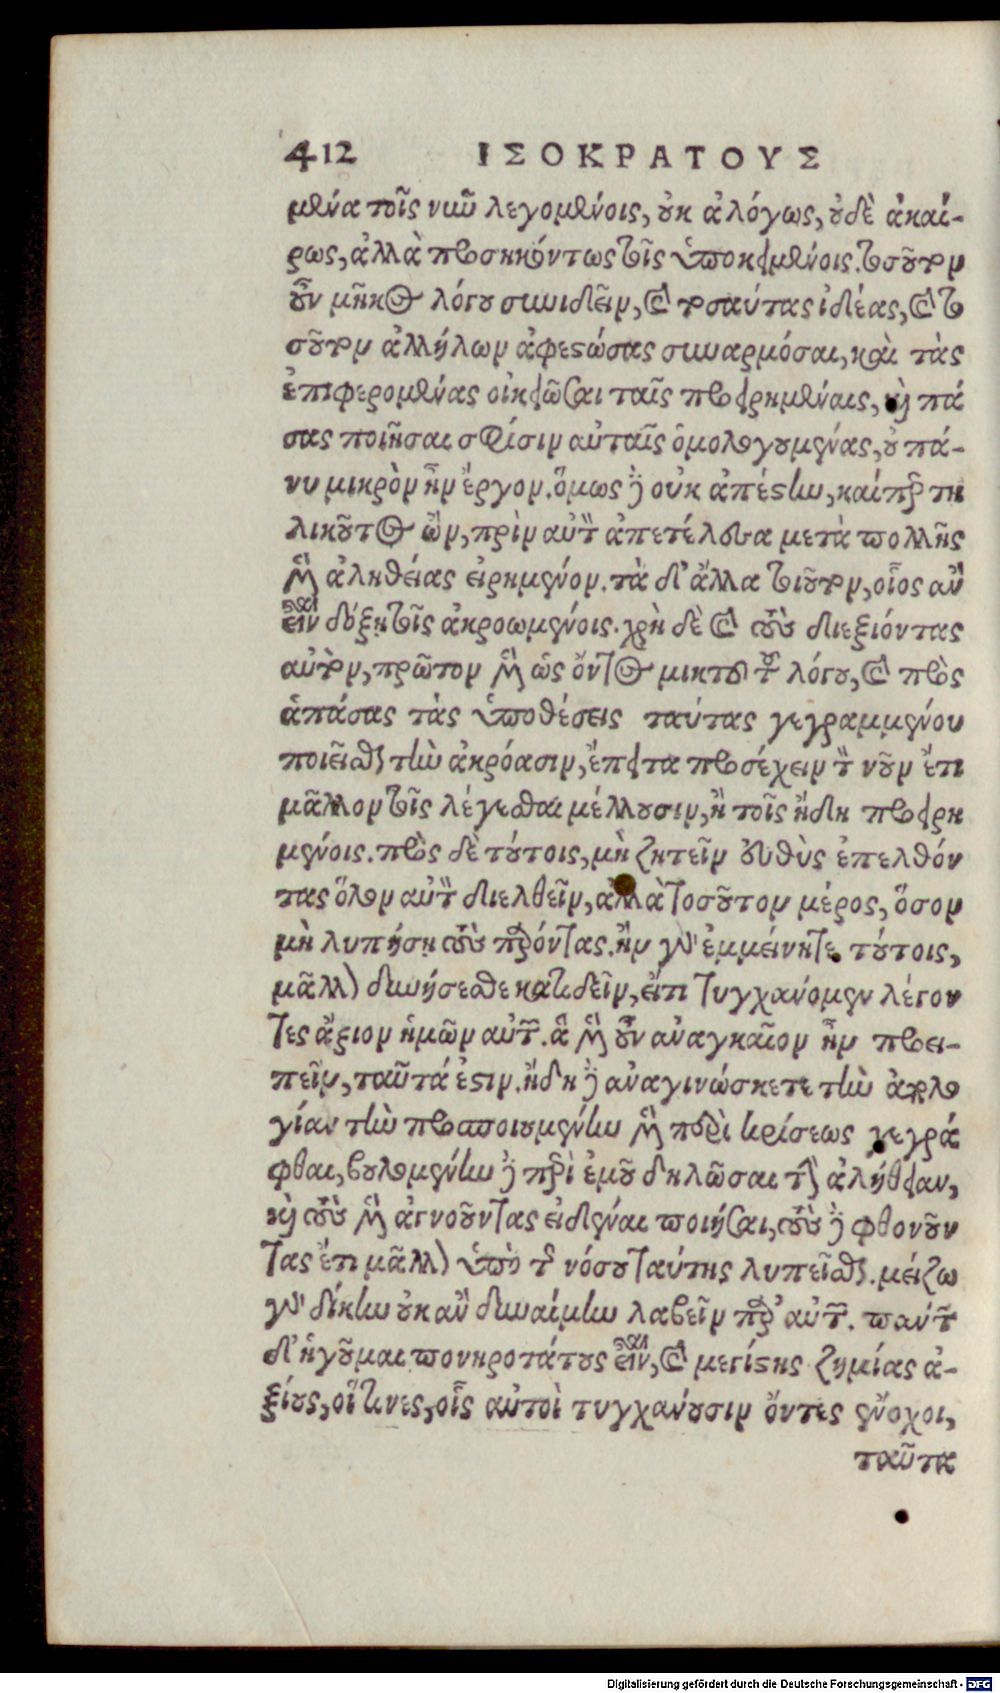 412 ΙΣΟΚΡΑΤΟΥΣ
μένα τοῖς νῦν λεγομένοις, οὐκ ἀλόγως, οὐδὲ ἀκαί-
ρως, ἀλλὰ προσηκόντως τοῖς ὑποκειμένοις. τοσοῦτον
οὖν μῆκος λόγου συνιδεῖν, καὶ τοσαύτας ἰδέας, καὶ το
σοῦτον ἀλλήλων ἀφεστώσας συναρμόσαι, καὶ τὰς
ἐπιφερομένας οἰκειῶσαι ταῖς προειρημέναις, καὶ πά
σας ποιῆσαι σφίσιν αὐταῖς ὁμολογουμένας, οὐ πά-
νυ μικρὸν ἦν ἔργον. ὅμως δὲ οὐκ ἀπέστην, καίπερ τη
λικοῦτος ὢν, πρὶν αὐτὸ ἀπετέλεσα μετὰ πολλῆς
μὲν ἀληθείας εἰρημένον. τὰ δ' ἄλλα τοιοῦτον, οἷος ἂν
εἶναι δόξῃ τοῖς ἀκροωμένοις. χρὴ δὲ καὶ τοὺς διεξιόντας
αὐτὸν, πρῶτον μὲν ὡς ὄντος μικτοῦ τοῦ λόγου, καὶ πρὸς
ἁπάσας τὰς ὑποθέσεις ταύτας γεγραμμένου
ποιεῖσθαι τὴν ἀκρόασιν, ἔπειτα προσέχειν τὸν νοῦν ἔτι
μᾶλλον τοῖς λέγεσθαι μέλλουσιν, ἢ τοῖς ἤδη προειρη
μένοις. πρὸς δὲ τούτοις, μὴ ζητεῖν εὐθὺς ἐπελθόν
τας ὅλον αὐτὸν διελθεῖν, ἀλλὰ τοσοῦτον μέρος, ὅσον
μὴ λυπήσῃ τοὺς παρόντας. ἢν γὰρ ἐμμείνητε τούτοις,
μᾶλλον δυνήσεσθε κατιδεῖν, εἴ τι τυγχάνομεν λέγον
τες ἄξιον ἡμῶν αὐτῶν. ἃ μὲν οὖν ἀναγκαῖον ἦν προει-
πεῖν, ταῦτά ἐστιν. ἤδη δὲ ἀναγινώσκετε τὴν ἀπολο
γίαν τὴν προσποιουμένην μὲν περὶ κρίσεως γεγρά
φθαι, βουλομένην δὲ περὶ ἐμοῦ δηλῶσαι τὴν ἀλήθειαν,
καὶ τοὺς μὲν ἀγνοοῦντας εἰδέναι ποιῆσαι, τοὺς δὲ φθονοῦν
τας ἔτι μᾶλλον ὑπὸ τῆς νόσου ταύτης λυπεῖσθαι. μείζω
γὰρ δίκην οὐκ ἂν δυναίμην λαβεῖν παρ' αὐτῶν. πάντων
δ' ἡγοῦμαι πονηροτάτους εἶναι, καὶ μεγίστης ζημίας ἀ-
ξίους, οἵτινες, οἷς αὐτοὶ τυγχάνουσιν ὄντες ἔνοχοι,
ταῦτα
Digitalisierung gefördert durch die Deutsche Forschungsgemeinschaft - DFG